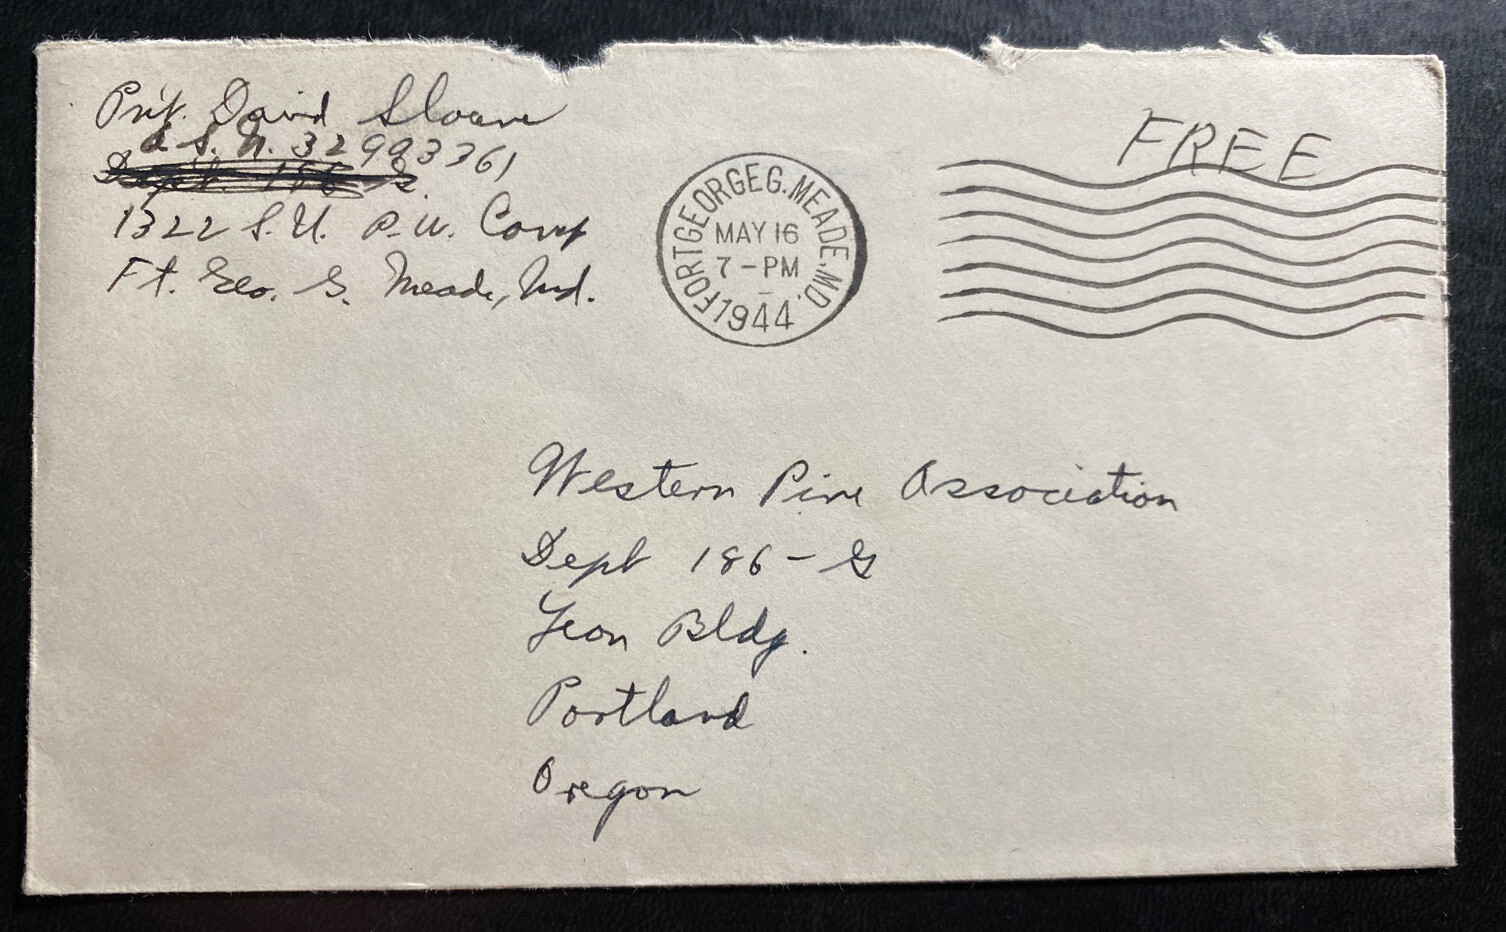 Pvt. David Sloane
A.S.N. 32993361
Dept. 186-G
1322 S.U. P.W. Camp
Ft. Geo. G. Meade, Md.
FORT GEORGE G. MEADE, MD.
MAY 16
7-PM
1944
FREE
Western Pine Association
Dept 186-G
Yeon Bldg.
Portland
Oregon